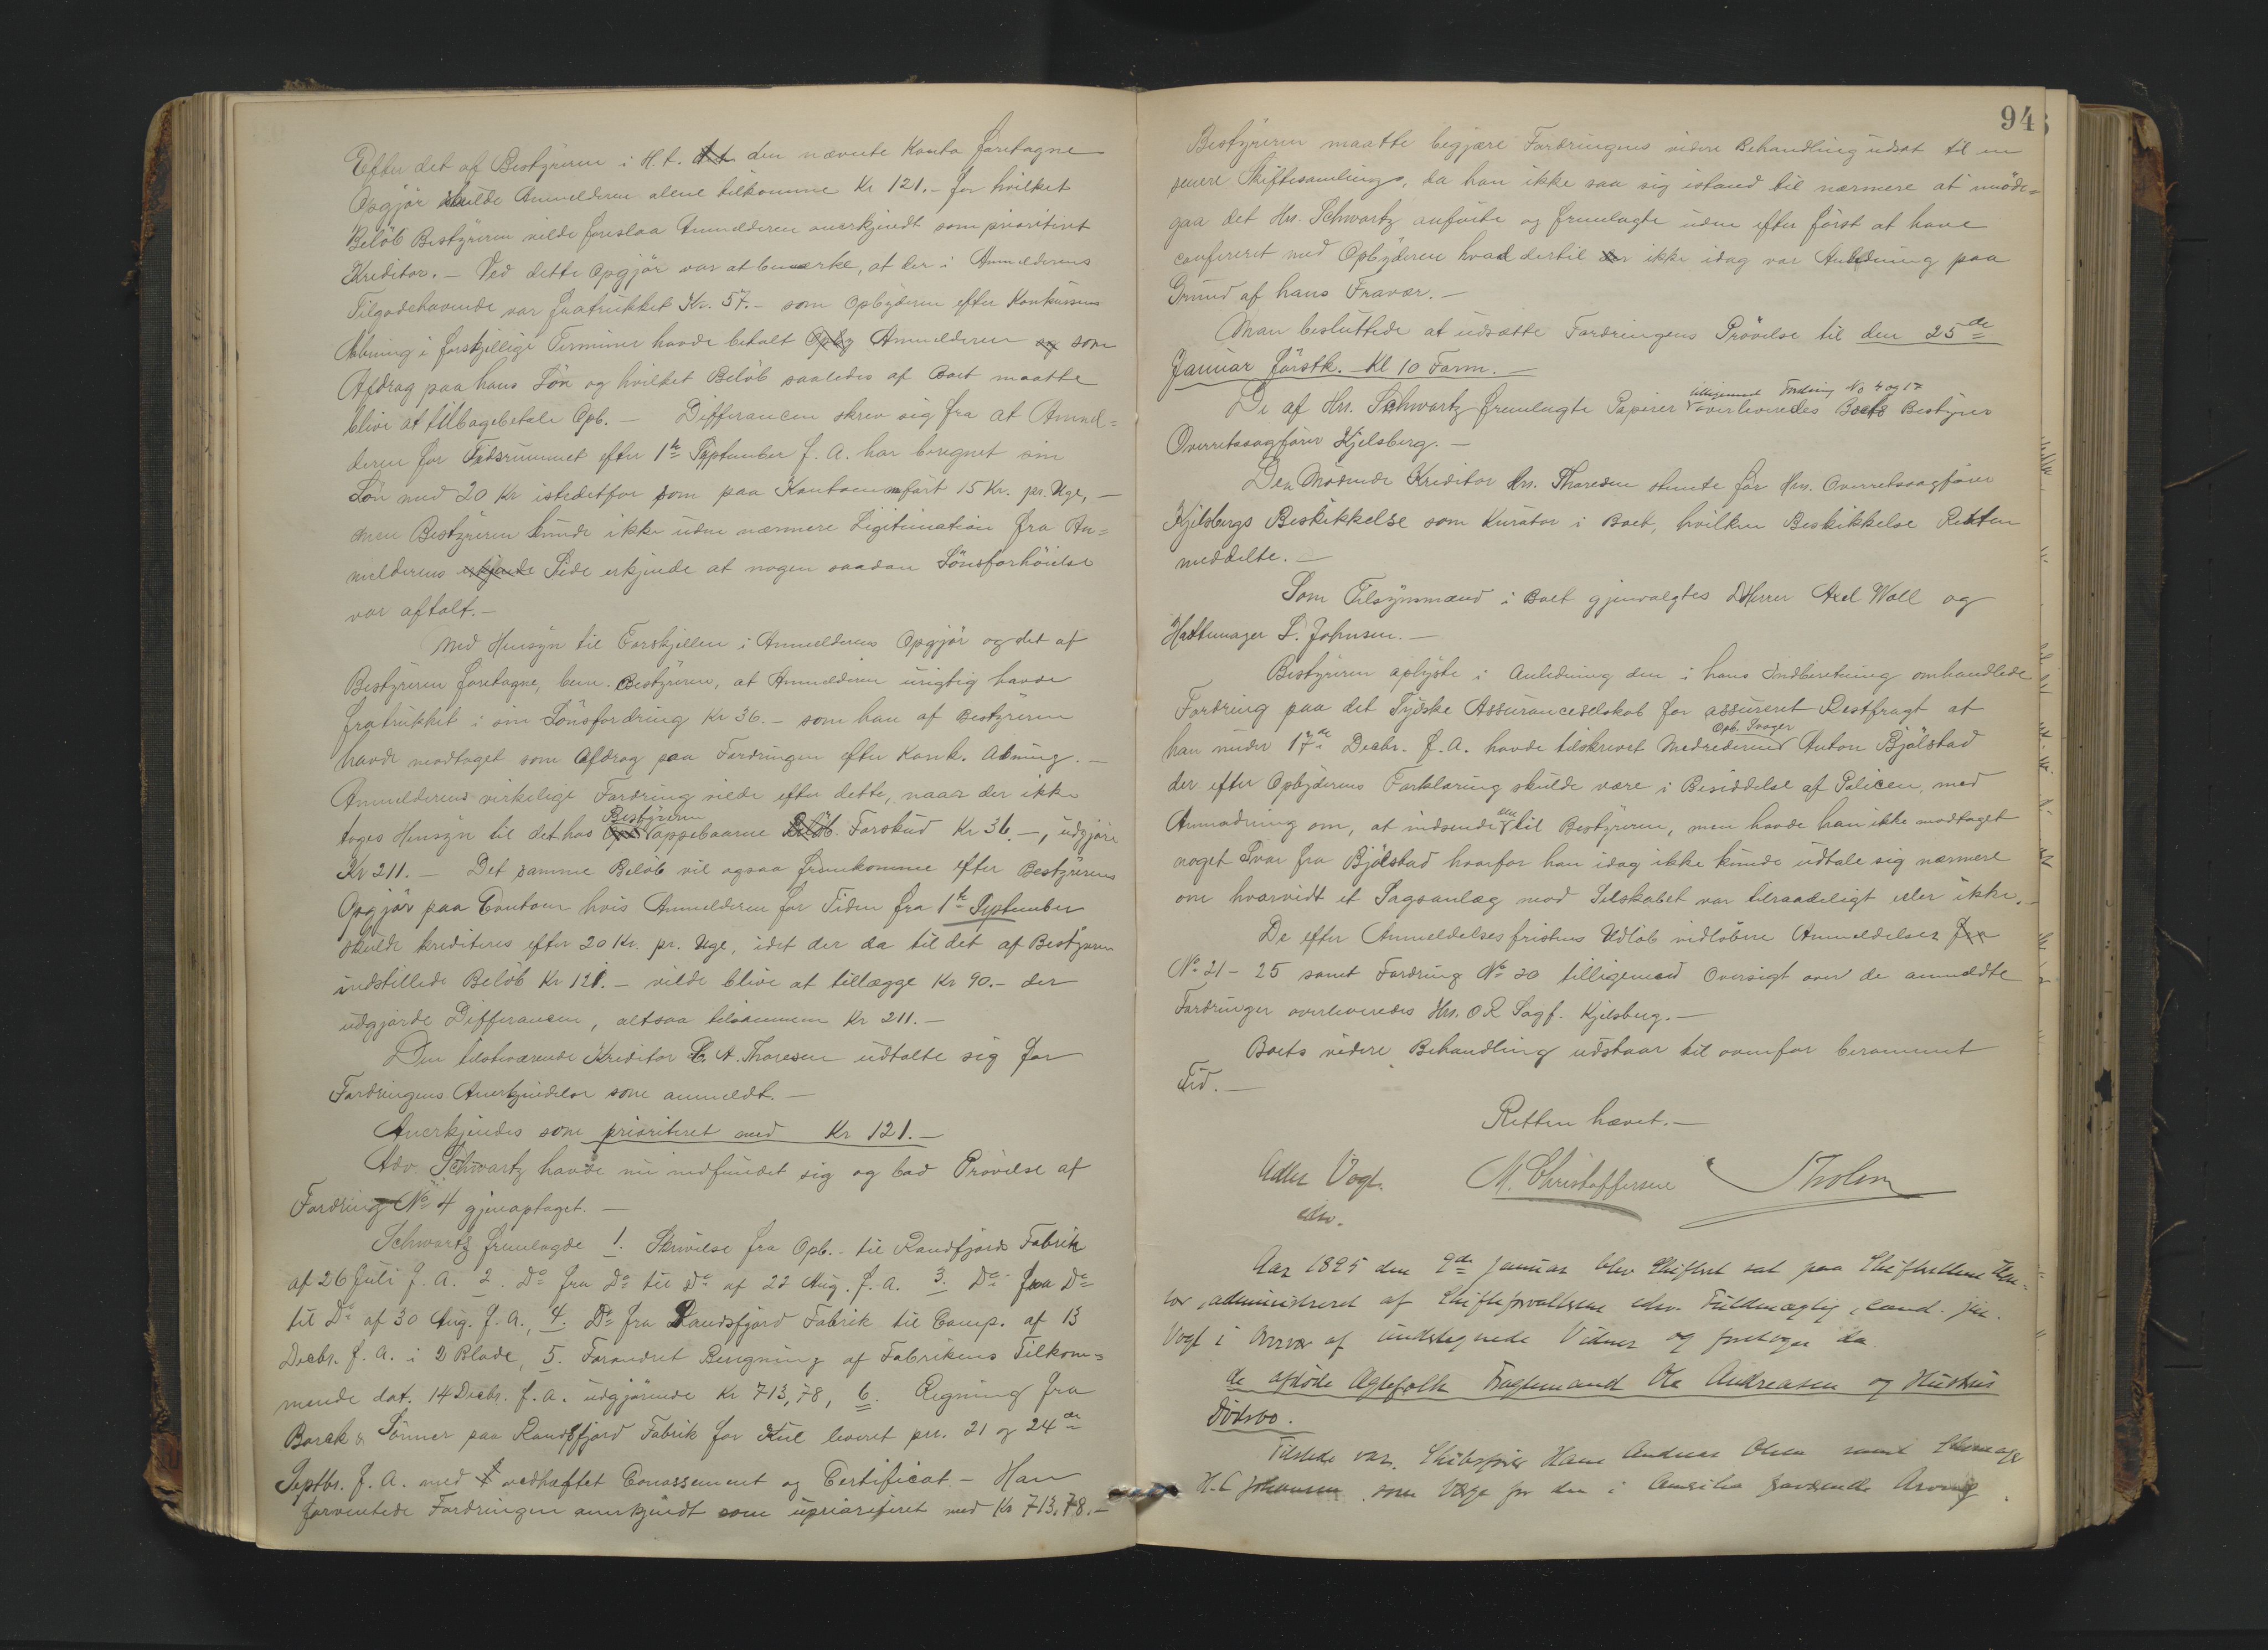 Efter det af Bestyreren i H. t. den nævnte Konto foretagne
Opgjör skulde Anmelderen alene tilkomme Kr 121.- for hvilket
Belöb Bestyreren vilde foreslaa Anmelderen anerkjendt som prioriteret
Kreditor. - Ved dette Opgjör var at bemærke, at der i Anmelderens
Tilgodehavende var fratrukket Kr. 57.- som Opbyderen efter Konkursens
Aabning i forskjellige Terminer havde betalt Anmelderen som
Afdrag paa hans Lön og hvilket Belöb saaledes af Boet maatte
blive at tilbagebetale Opb. - Differancen skrev sig fra at Anmel=
deren for Tidsrummet efter 1ste September f. A. har beregnet sin
Lön med 20 Kr istedetfor som paa Kontoen anfört 15 Kr. pr. Uge, -
men Bestyreren kunde ikke uden nærmere Legitimation fra An=
melderens Side erkjende at nogen saadan Lönsforhöielse
var aftalt.-
Med Hensyn til Forskjellen i Anmelderens Opgjör og det af
Bestyreren foretagne, bem. Bestyreren, at Anmelderen urigtig havde
fratrukket i sin Lönsfordring Kr 36.- som han af Bestyreren
havde modtaget som Afdrag paa Fordringen efter Konk. Abning. -
Anmelderens virkelige Fordring vilde efter dette, naar der ikke
toges Hensyn til det hos Bestyreren oppebaarne Forskud Kr 36.-, udgjöre
Kr 211. - Det samme Belöb vil ogsaa fremkomme efter Bestyrerens
Opgjör paa Contoen hvis Anmelderen for Tiden fra 1ste September
skulde krediteres efter 20 Kr. pr. Uge, idet der da til det af Bestyreren
indstillede Belöb Kr 121.- vilde blive at tillægge Kr 90.- der
udgjorde Differancen, altsaa tilsammen Kr 211.-
Den tilstedeværende Kreditor A. Thoresen udtalte sig for
Fordringens Anerkjendelse som anmeldt.-
Anerkjendes som prioriteret med Kr 121.-
Adv. Schwartz havde nu indfundet sig og bad Prövelse af
Fordring No 4 gjenoptaget. -
Schwartz fremlagde 1. Skrivelse fra Opb. - til Randfjords Fabrik
af 26 Juli f. A. 2. Do fra Do til Do af 22 Aug. f. A. 3. Do fra Do
til Do af 30 Aug. f. A., 4. Do fra Randsfjord Fabrik til Comp. af 13
Decbr. f. A. i 2 Blade, 5. Forandret Beregning af Fabrikens Tilkom=
mende dat. 14 Decbr. f. A. udgjörende Kr 713,78, 6. Regning fra
& Sönner paa Randsfjord Fabrik for Kul leveret pr. 21 og 24de
Septbr. f. A. med vedhæftet Conossement og Certificat - Han
forventede Fordringen anerkjendt som uprioriteret med Kr 713,78.-
94
Bestyreren maatte begjære Fordringens videre Behandling udsat til en
senere Skiftesamling, da han ikke saa sig istand til nærmere at imöde=
gaa det Hrr. Schwartz anförte og fremlagte uden efter först at have
confereret med Opbyderen hvad dertil ikke idag var Anledning paa
Grund af hans Fravær.-
Man besluttede at udsætte Fordringens Prövelse til den 25de
Januar förstk. Kl 10 Form. -
De af Hrr. Schwartz fremlagte Papirer tilligemed Fordring No 4 og 17 overleveredes Boets Bestyrer
Overretssagförer Kjelsberg. -
Den Mödende Kreditor Hrr. Thoresen stemte for Hrr. Overretssagförer
Kjelsbergs Beskikkelse som Kurator i Boet, hvilken Beskikkelse Retten
meddelte. -
Som Tilsynsmænd i Boet gjenvalgtes DHerrer Axel Woll og
Hattemager L. Johnsen. -
Bestyreren oplyste i Anledning den i hans Indberetning omhandlede
Fordring paa det Tydske Assuranceselskab for assureret Restfragt at
han under 17de Decbr. f. A. havde tilskrevet Medrederiend Opb. Svoger Anton Bjölstad
der efter Opbyderens Forklaring skulde være i Besiddelse af Policen, med
Anmodning om, at indsende den til Bestyreren, men havde han ikke modtaget
noget Svar fra Bjölstad hvorfor han idag ikke kunde udtale sig nærmere
om hvorvidt et Sagsanlæg mod Selskabet var tilraadeligt eller ikke.-
De efter Anmeldelsesfristens Udlöb indlöbne Anmeldelser
No 21 - 25 samt Fordring No 20 tilligemed Oversigt over de anmeldte
Fordringer overleveredes Hrr. O R Sagf. Kjelsberg. -
Boets videre Behandling udstaar til ovenfor berammet
Tid. -
Retten hævet. -
Adler Vogt. M. Christoffersen Tholm
edsv.
Aar 1895 den 9de Januar blev Skifteret sat paa
administreret af Skifteforvalterens edsv. Fuldmægtig, cand. jur.
Vogt i Nærvær af undertegnede Vidner og foretoges da
de afdöde Ægtefolk Fragtemand Ole Andreasen og Hustrus
Dödsbo.
Tilstede var Skibsförer Hans Andreas Olsen samt
H. C Johansen som Værge for den i Amerika fraværende Arving.